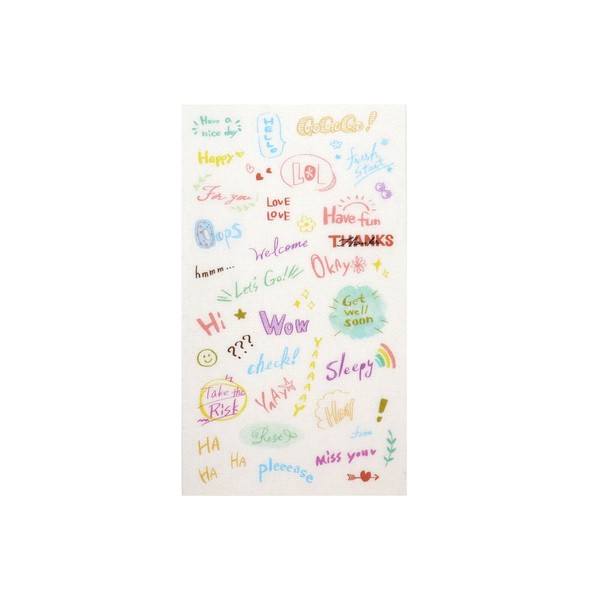 Have a
nice day
HELLO
GoGoGo!
Happy
LOL
Fresh
Start
For you
LOVE
LOVE
Have fun
Oops
THANKS
Welcome
hmmm...
Okay
Let's Go!
Get
well
soon
Hi
Wow
???
YAAAAAY
check!
Sleepy
Take the
Risk
YAAY
!
HA
HA
HA
Miss you
pleeease